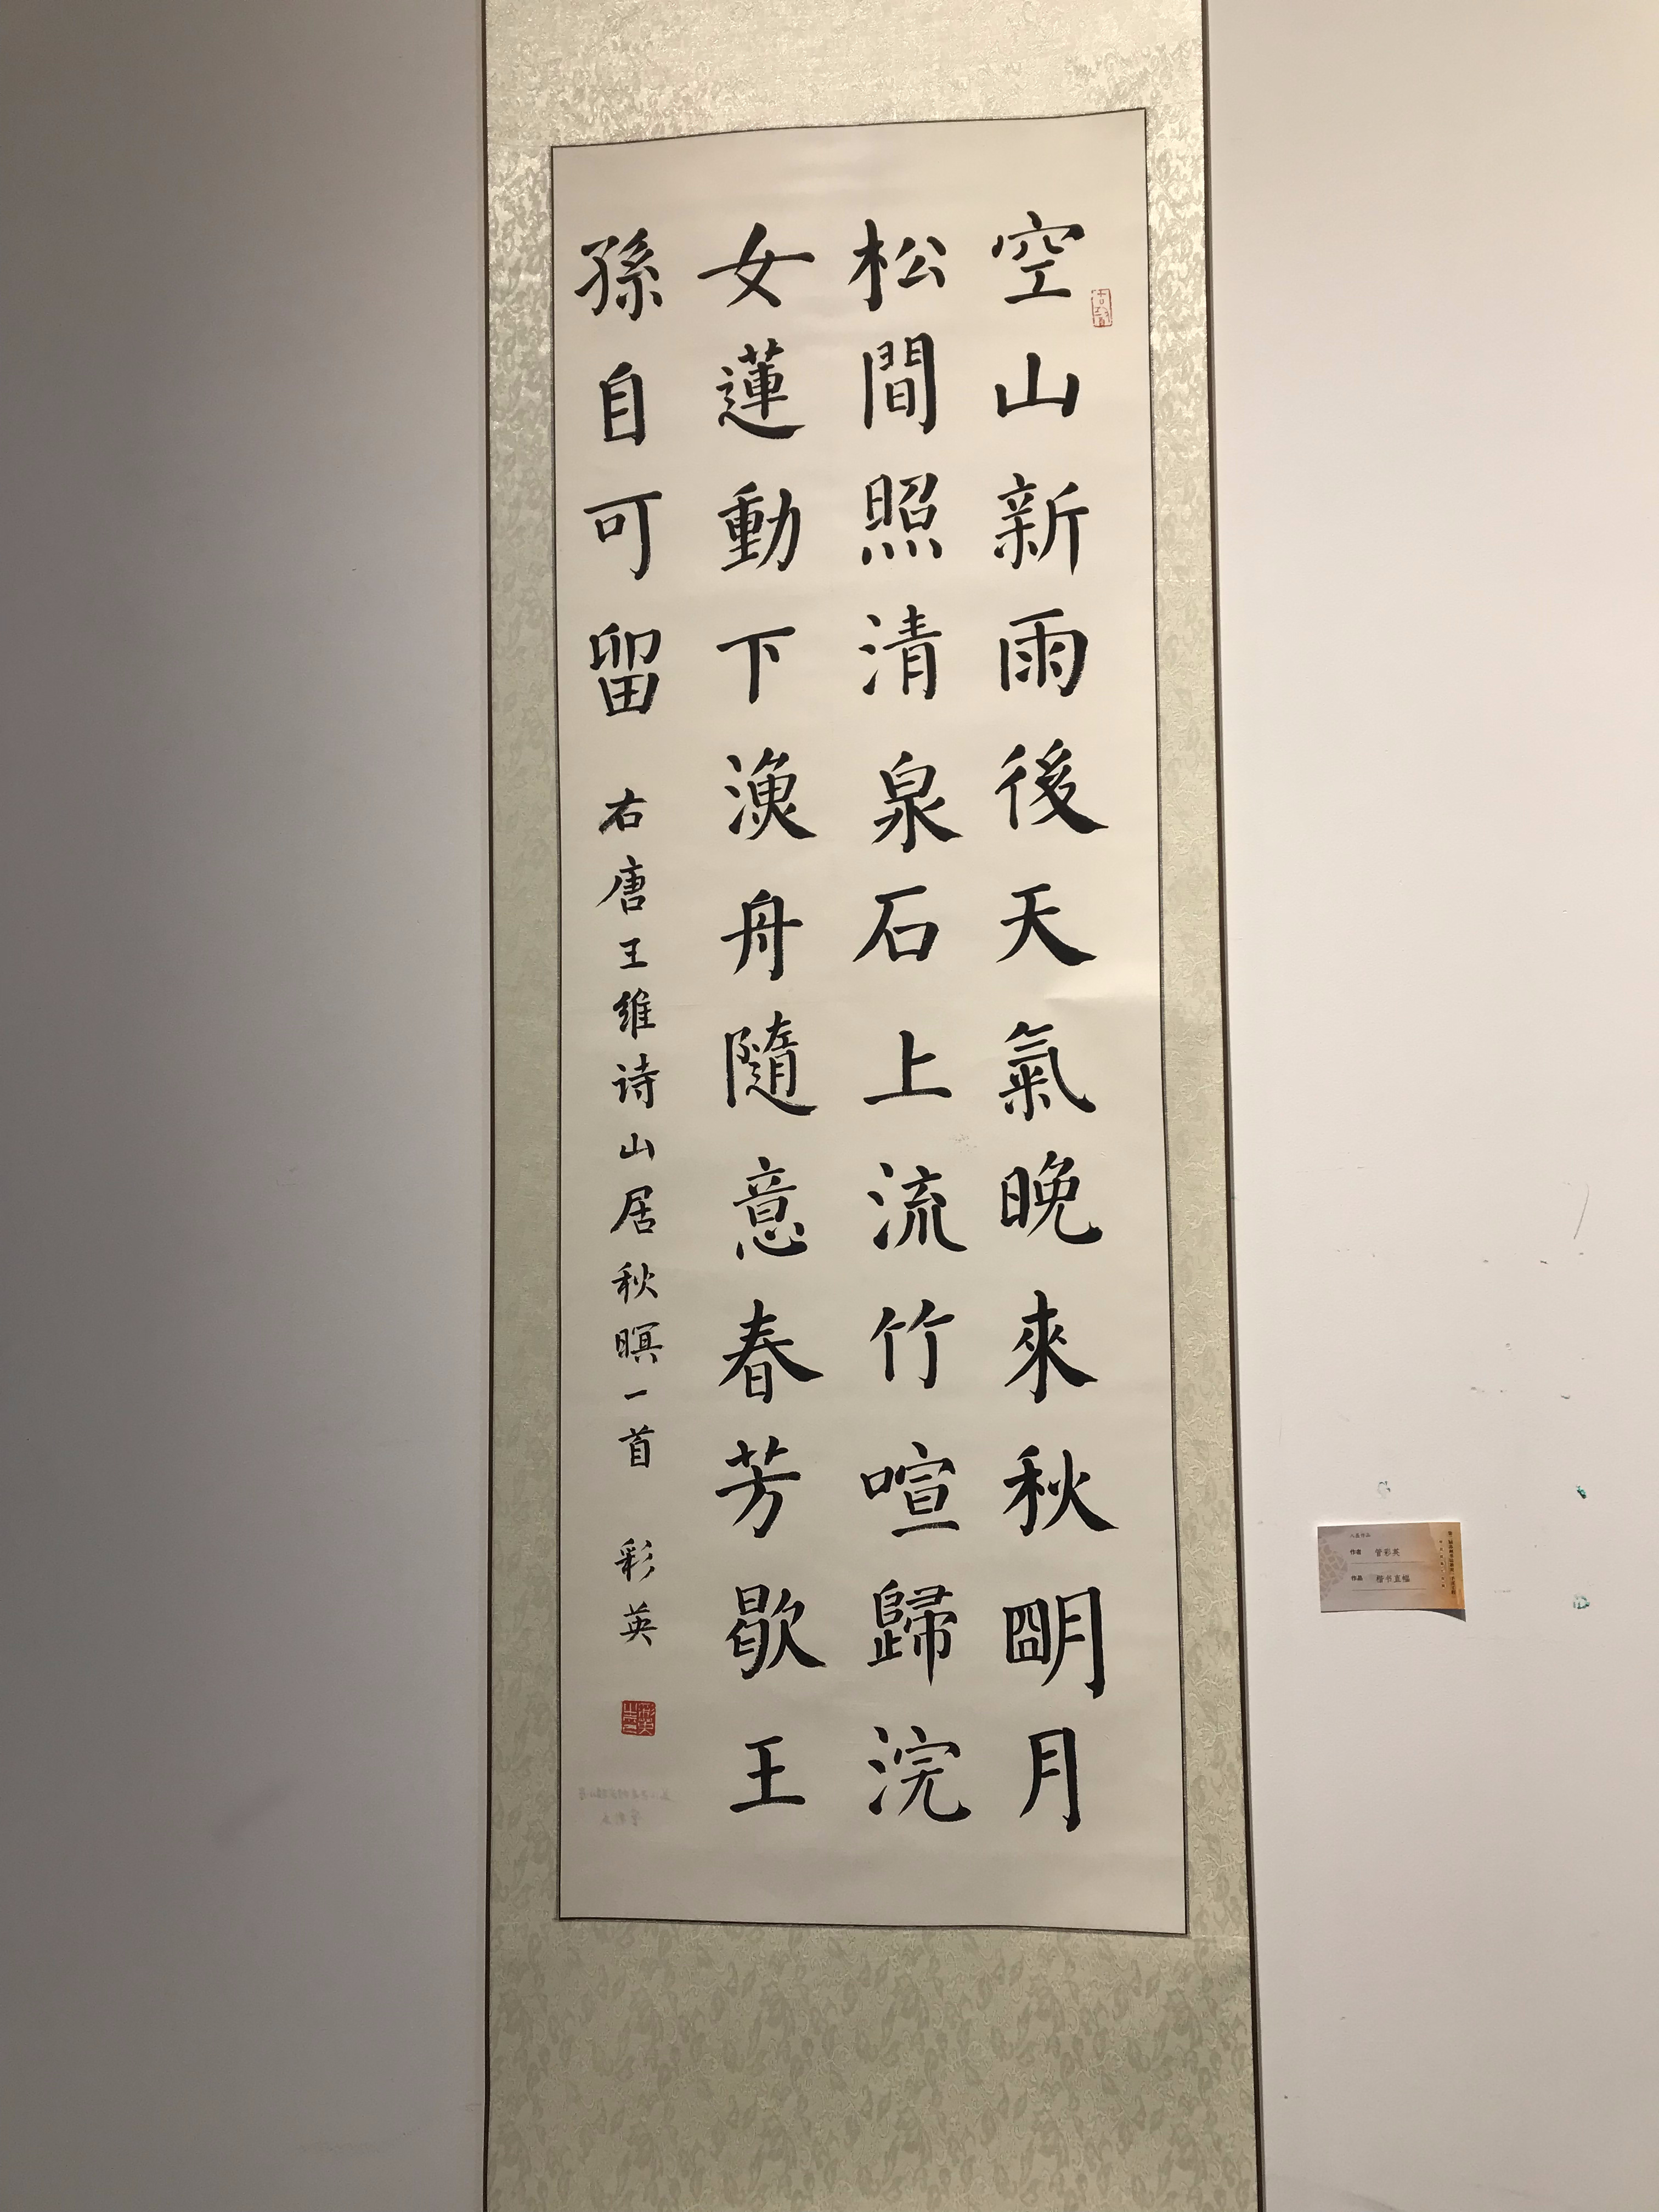 空山新雨後天氣晚來秋朙月
松間照清泉石上流竹喧歸浣
女蓮動下漁舟隨意春芳歇王
孫自可留
右唐王维诗山居秋暝一首 彩英
入展作品
作者 管彩英
作品 楷书直幅